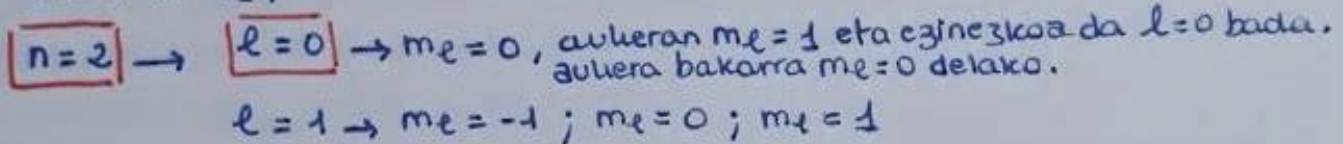 n = 2 → l = 0 → ml = 0, aukeran ml = 1 eta ezinezkoa da l = 0 bada.
aukera bakarra ml = 0 delako.
l = 1 → ml = -1 ; ml = 0 ; ml = 1